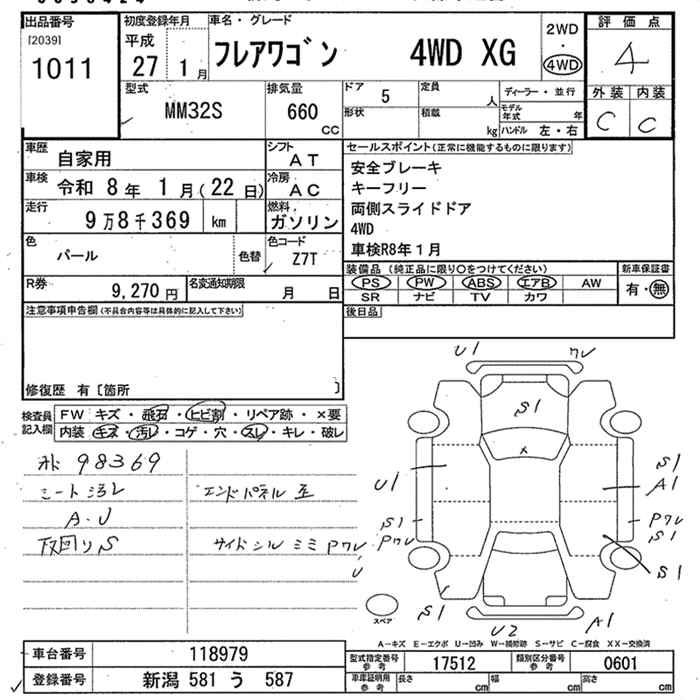 出品番号
[2039]
1011
初度登録年月
平成
27年 1月
車名・グレード
フレアワゴン 4WD XG
2WD
・
4WD
評価点
4
外装 内装
C C
型式
MM32S
排気量
660 CC
ドア 5
形状
定員 人
積載 kg
ディーラー・並行
モデル年式 年
ハンドル 左・右
車歴 自家用
シフト AT
車検 令和 8年 1月(22日)
冷房 AC
走行 9万8千369 km
燃料 ガソリン
色 パール
色替
色コード Z7T
R券 9,270円
名変通知期限 月 日
セールスポイント(正常に機能するものに限ります)
安全ブレーキ
キーフリー
両側スライドドア
4WD
車検R8年1月
装備品(純正品に限り○をつけてください)
PS PW ABS エアB AW
SR ナビ TV カワ
新車保証書
有・無
後日品
注意事項申告欄(不具合内容等は具体的に記入して下さい)
修復歴 有〔箇所 〕
検査員記入欄
FW キズ・飛石・ヒビ割・リペア跡・×要
内装 キズ・汚レ・コゲ・穴・スレ・キレ・破レ
98369
シート汚レ
A・U
下回りS
エンドパネル
サイドシル ミミ Pワレ
U
U1 ワレ
S1
×
U1
S1
A1
S1
Pワレ
Pワレ
S1
S1
S1
U2
A1
スペア
A−キズ E−エクボ U−凹み W−補修跡 S−サビ C−腐食 XX−交換済
車台番号 118979
登録番号 新潟 581 う 587
型式指定番号 参考 17512
類別区分番号 参考 0601
車庫証明用 参考 長さ cm 幅 cm 高さ cm